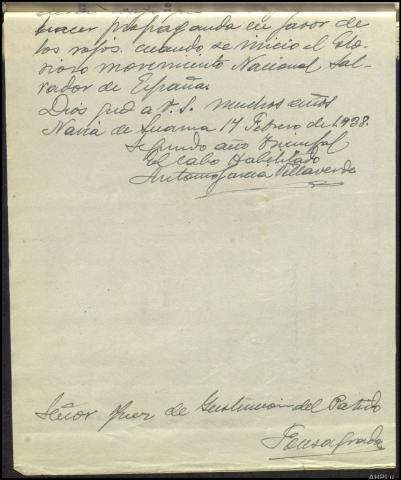 hacer propaganda en favor de
los rojos. cuando se inicio el Glo-
rioso movimiento Nacional Sal-
vador de España.
Dios gude a V. S. muchos años
Navia de Suarna 17 Febrero de 1.938.
Segundo año Triunfal
El Cabo Habilitado
Antonio Garcia Villaverde
Señor Juez de Instrucion del Partido
Fonsagrada
AHPLu